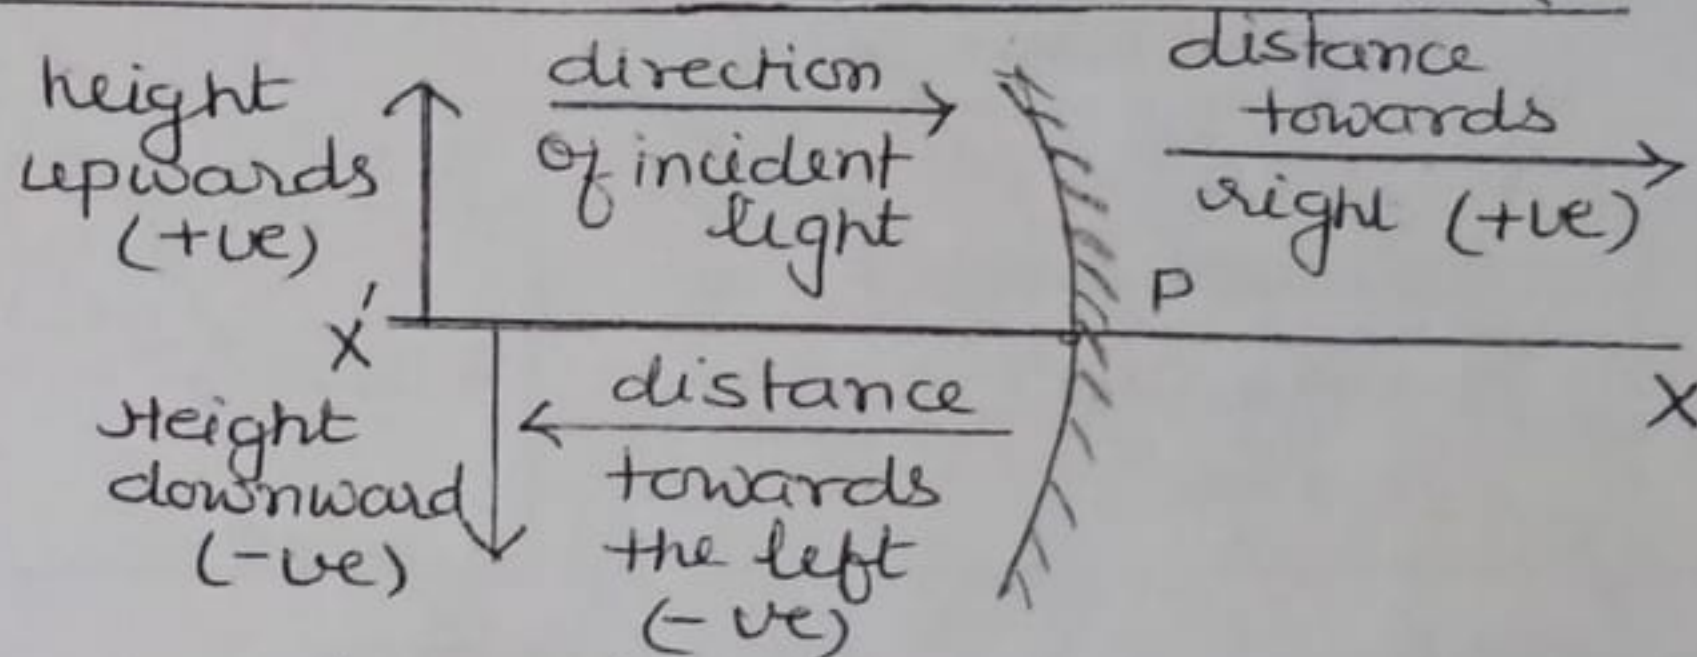 height
upwards
(+ve)
direction
of incident
light
distance
towards
right (+ve)
P
X'
X
Height
downward
(-ve)
distance
towards
the left
(-ve)